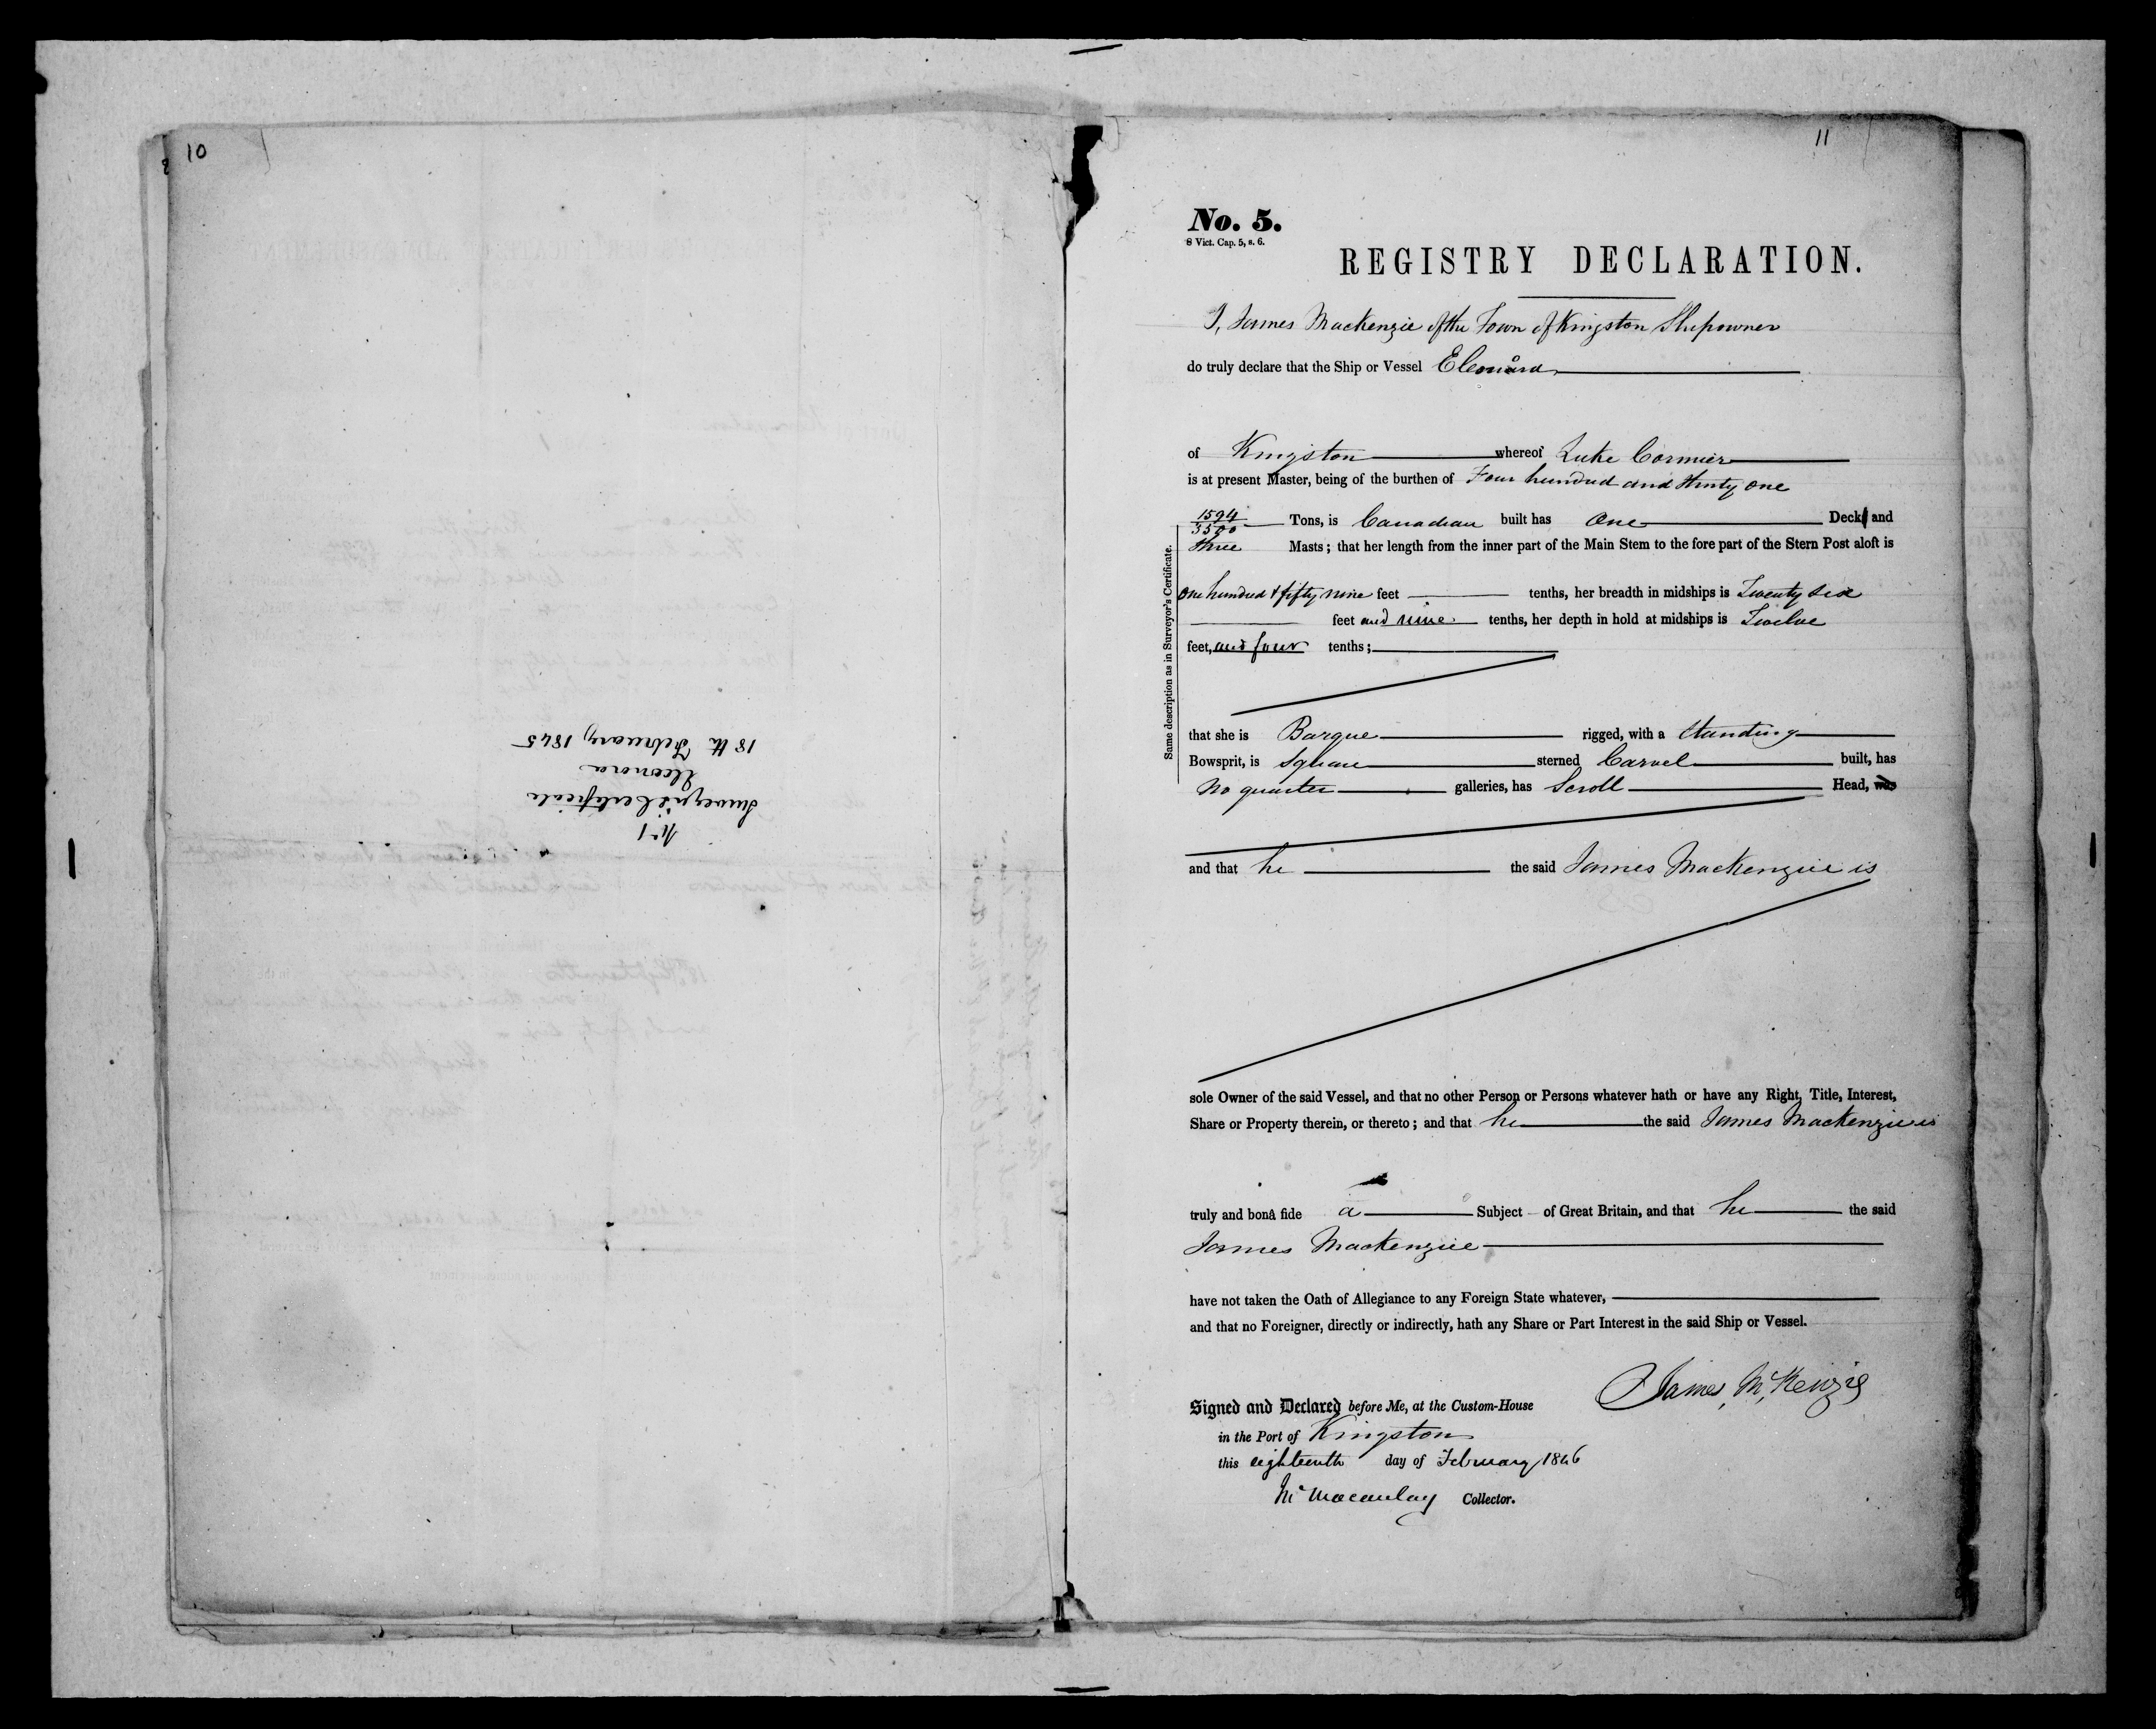 10
No 1
Surveyor's Certificate
Eleonora
18th February 1845
11
No. 5.
8 Vict. Cap. 5, s. 6.
REGISTRY DECLARATION.
I, James Mackenzie of the Town of Kingston Shipowner
do truly declare that the Ship or Vessel Eleonora
of Kingston whereof Luke Cormier
is at present Master, being of the burthen of Four hundred and thirty one
1594/3500 Tons, is Canadian built has One Deck and
three Masts; that her length from the inner part of the Main Stem to the fore part of the Stern Post aloft is
One hundred & fifty nine feet tenths, her breadth in midships is Twenty six
feet and nine tenths, her depth in hold at midships is Twelve
feet, and four tenths;
Same description as in Surveyor's Certificate.
that she is Barque rigged, with a standing
Bowsprit, is square sterned Carvel built, has
No quarter galleries, has Scroll Head, was
and that he the said James Mackenzie is
sole Owner of the said Vessel, and that no other Person or Persons whatever hath or have any Right, Title, Interest,
Share or Property therein, or thereto; and that he the said James Mackenzie is
truly and bonâ fide a Subject of Great Britain, and that he the said
James Mackenzie
have not taken the Oath of Allegiance to any Foreign State whatever,
and that no Foreigner, directly or indirectly, hath any Share or Part Interest in the said Ship or Vessel.
James McKenzie
Signed and Declared before Me, at the Custom-House
in the Port of Kingston
this eighteenth day of February 1846
Macaulay Collector.